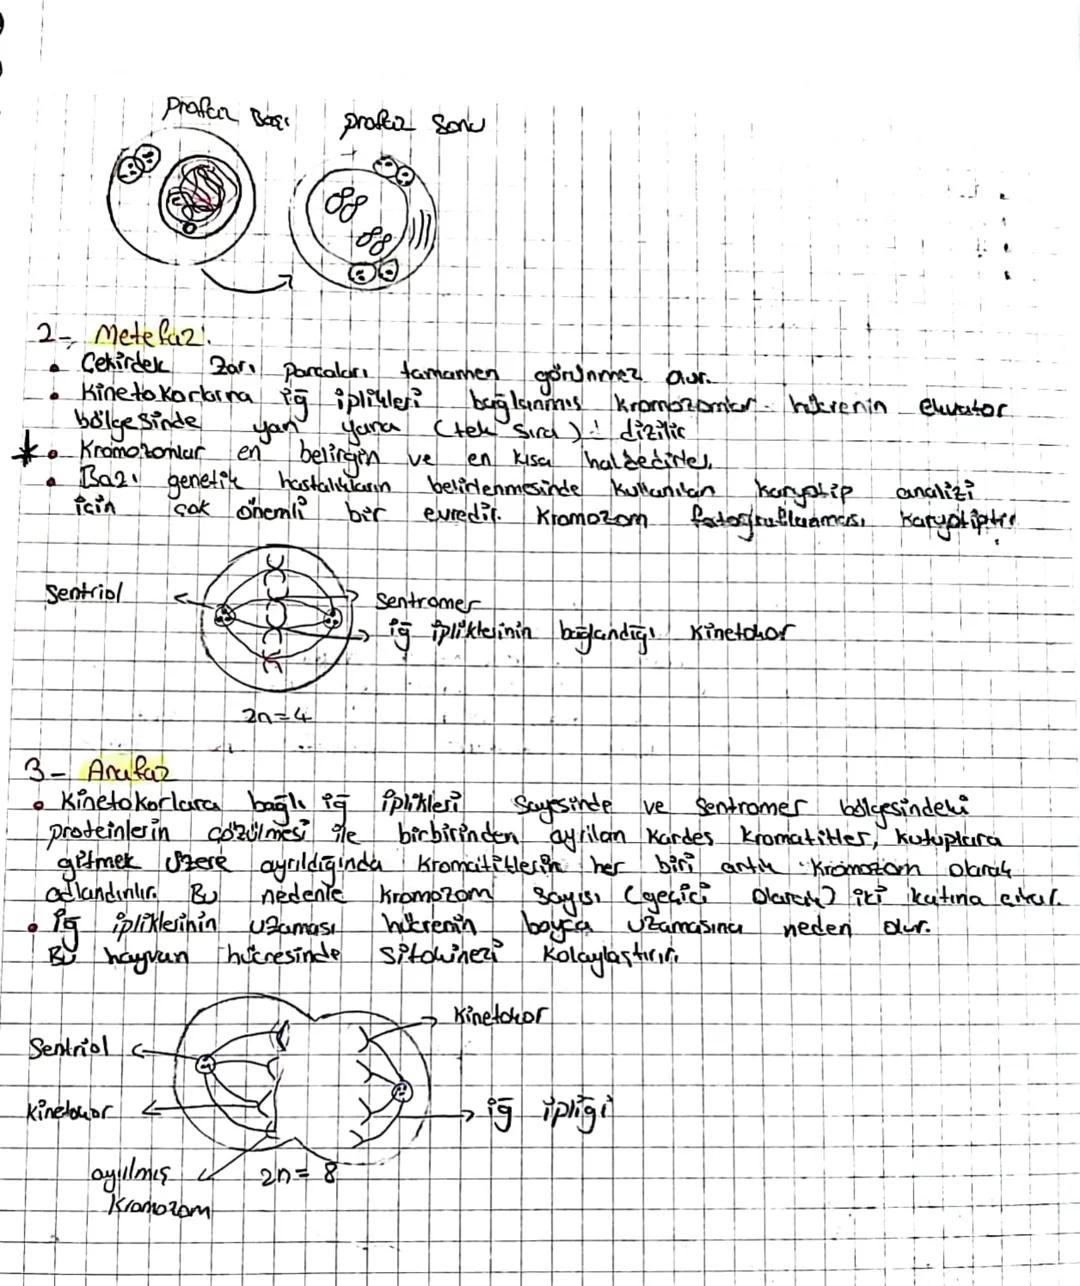 Profaz Başı
profaz Sonu
2- Metefaz:
• Çekirdek Zarı parçaları tamamen görünmez olur.
• Kinetokorlarına iğ iplikleri bağlanmış kromozomlar hücrenin ekvator
bölgesinde yan yana (tek sıra) dizilir
* • Kromozomlar en belirgin ve en kısa haldedirler.
• Bazı genetik hastalıkların belirlenmesinde kullanılan karyotip analizi
için çok önemli bir evredir. Kromozom fotoğraflanması karyotiptir.
Sentriol
Sentromer
iğ ipliklerinin bağlandığı kinetokor
2n=4
3- Anafaz
• Kinetokorlara bağlı iğ iplikleri sayesinde ve Sentromer bölgesindeki
proteinlerin çözülmesi ile birbirinden ayrılan kardeş kromatitler, kutuplara
gitmek üzere ayrıldığında kromatitlerin her biri artık kromozom olarak
adlandırılır. Bu nedenle kromozom sayısı (geçici olarak) iki katına çıkar.
• iğ ipliklerinin uzaması hücrenin boyca uzamasına neden olur.
Bu hayvan hücresinde sitokinezi kolaylaştırır.
Kinetokor
Sentriol
kinetokor
iğ ipliği
ayrılmış
kromozom
2n= 8